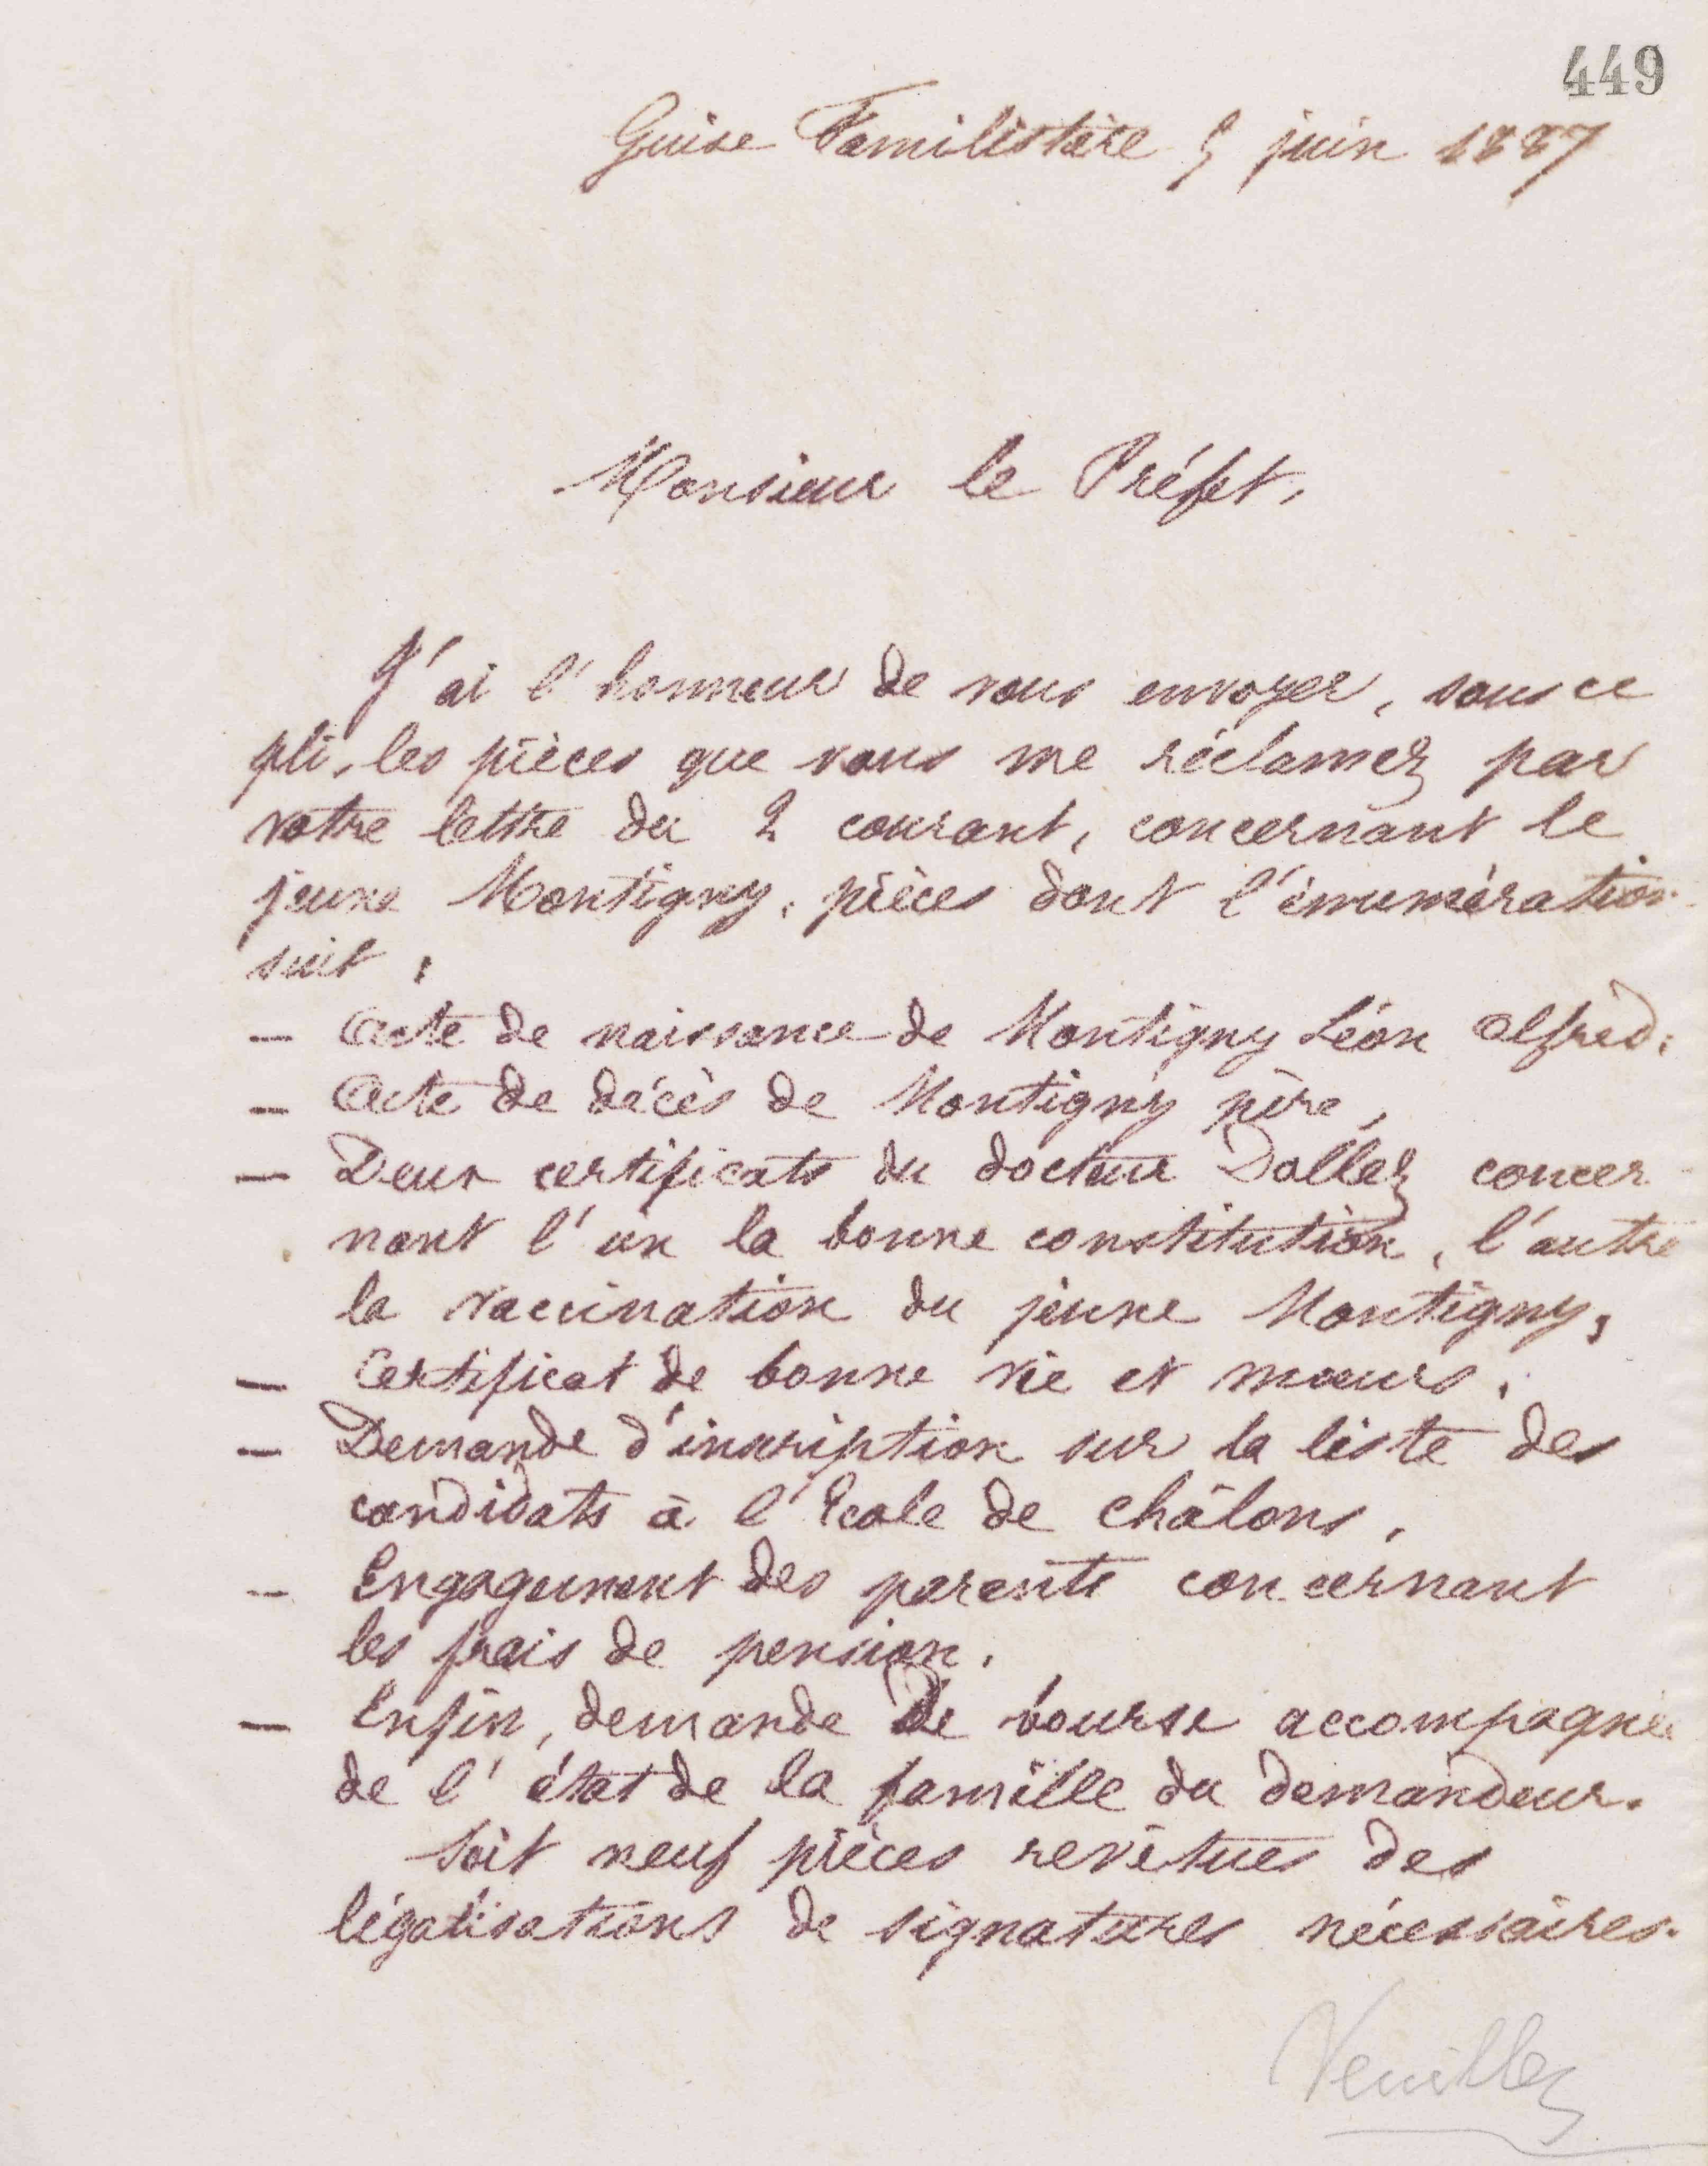 449
Guise Familistère 5 juin 1887
Monsieur le Préfet,
J'ai l'honneur de vous envoyer, sous ce
pli, les pièces que vous me réclamez par
votre lettre du 2 courant, concernant le
jeune Montigny, pièces dont l'énumération
suit :
— Acte de naissance de Montigny Léon Alfred,
— Acte de décès de Montigny père,
— Deux certificats du docteur Dollez concer
nant l'un la bonne constitution, l'autre
la vaccination du jeune Montigny,
— Certificat de bonne vie et mœurs,
— Demande d'inscription sur la liste des
candidats à l'Ecole de Châlons,
— Engagement des parents concernant
les frais de pension.
— Enfin, demande de bourse accompagnée
de l'état de la famille du demandeur.
Soit neuf pièces revêtues des
légalisations de signatures nécessaires.
Veuillez